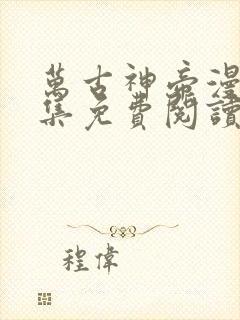 萬古神帝漫
集免費閱讀
程偉